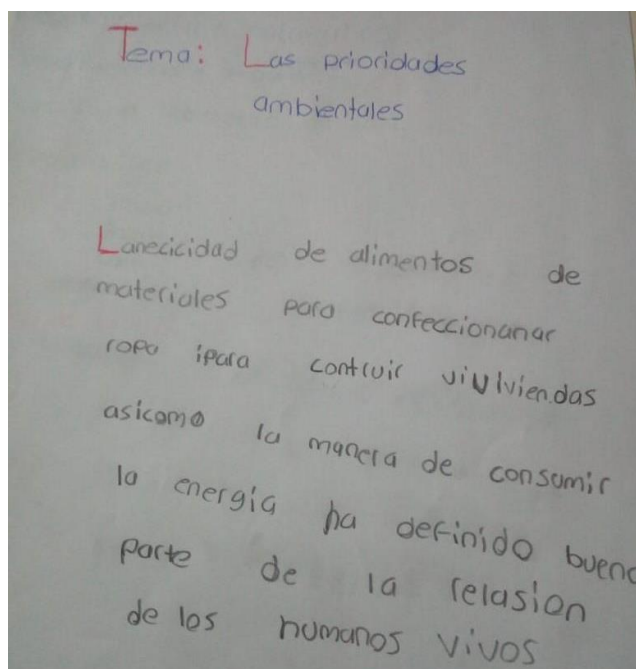 Tema: Las prioridades
ambientales
Lanecicidad de alimentos de
materiales para confeccionanar
ropa ipara contruir viviviendas
asicomo la manera de consumir
la energia ha definido buena
parte de la relasion
de los humanos vivos